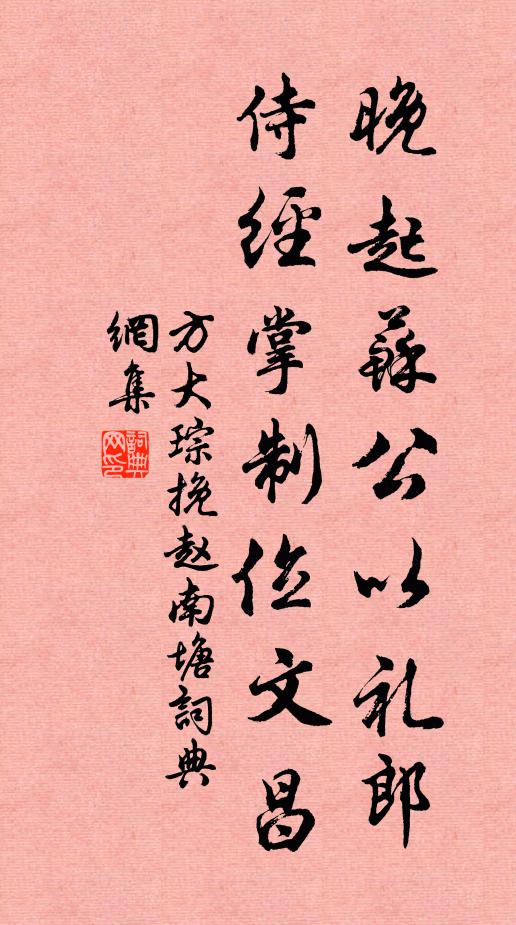 晚起蘇公以礼郎
侍經掌制位文昌
方大琮挽赵南塘詞典
網集
詞典网印